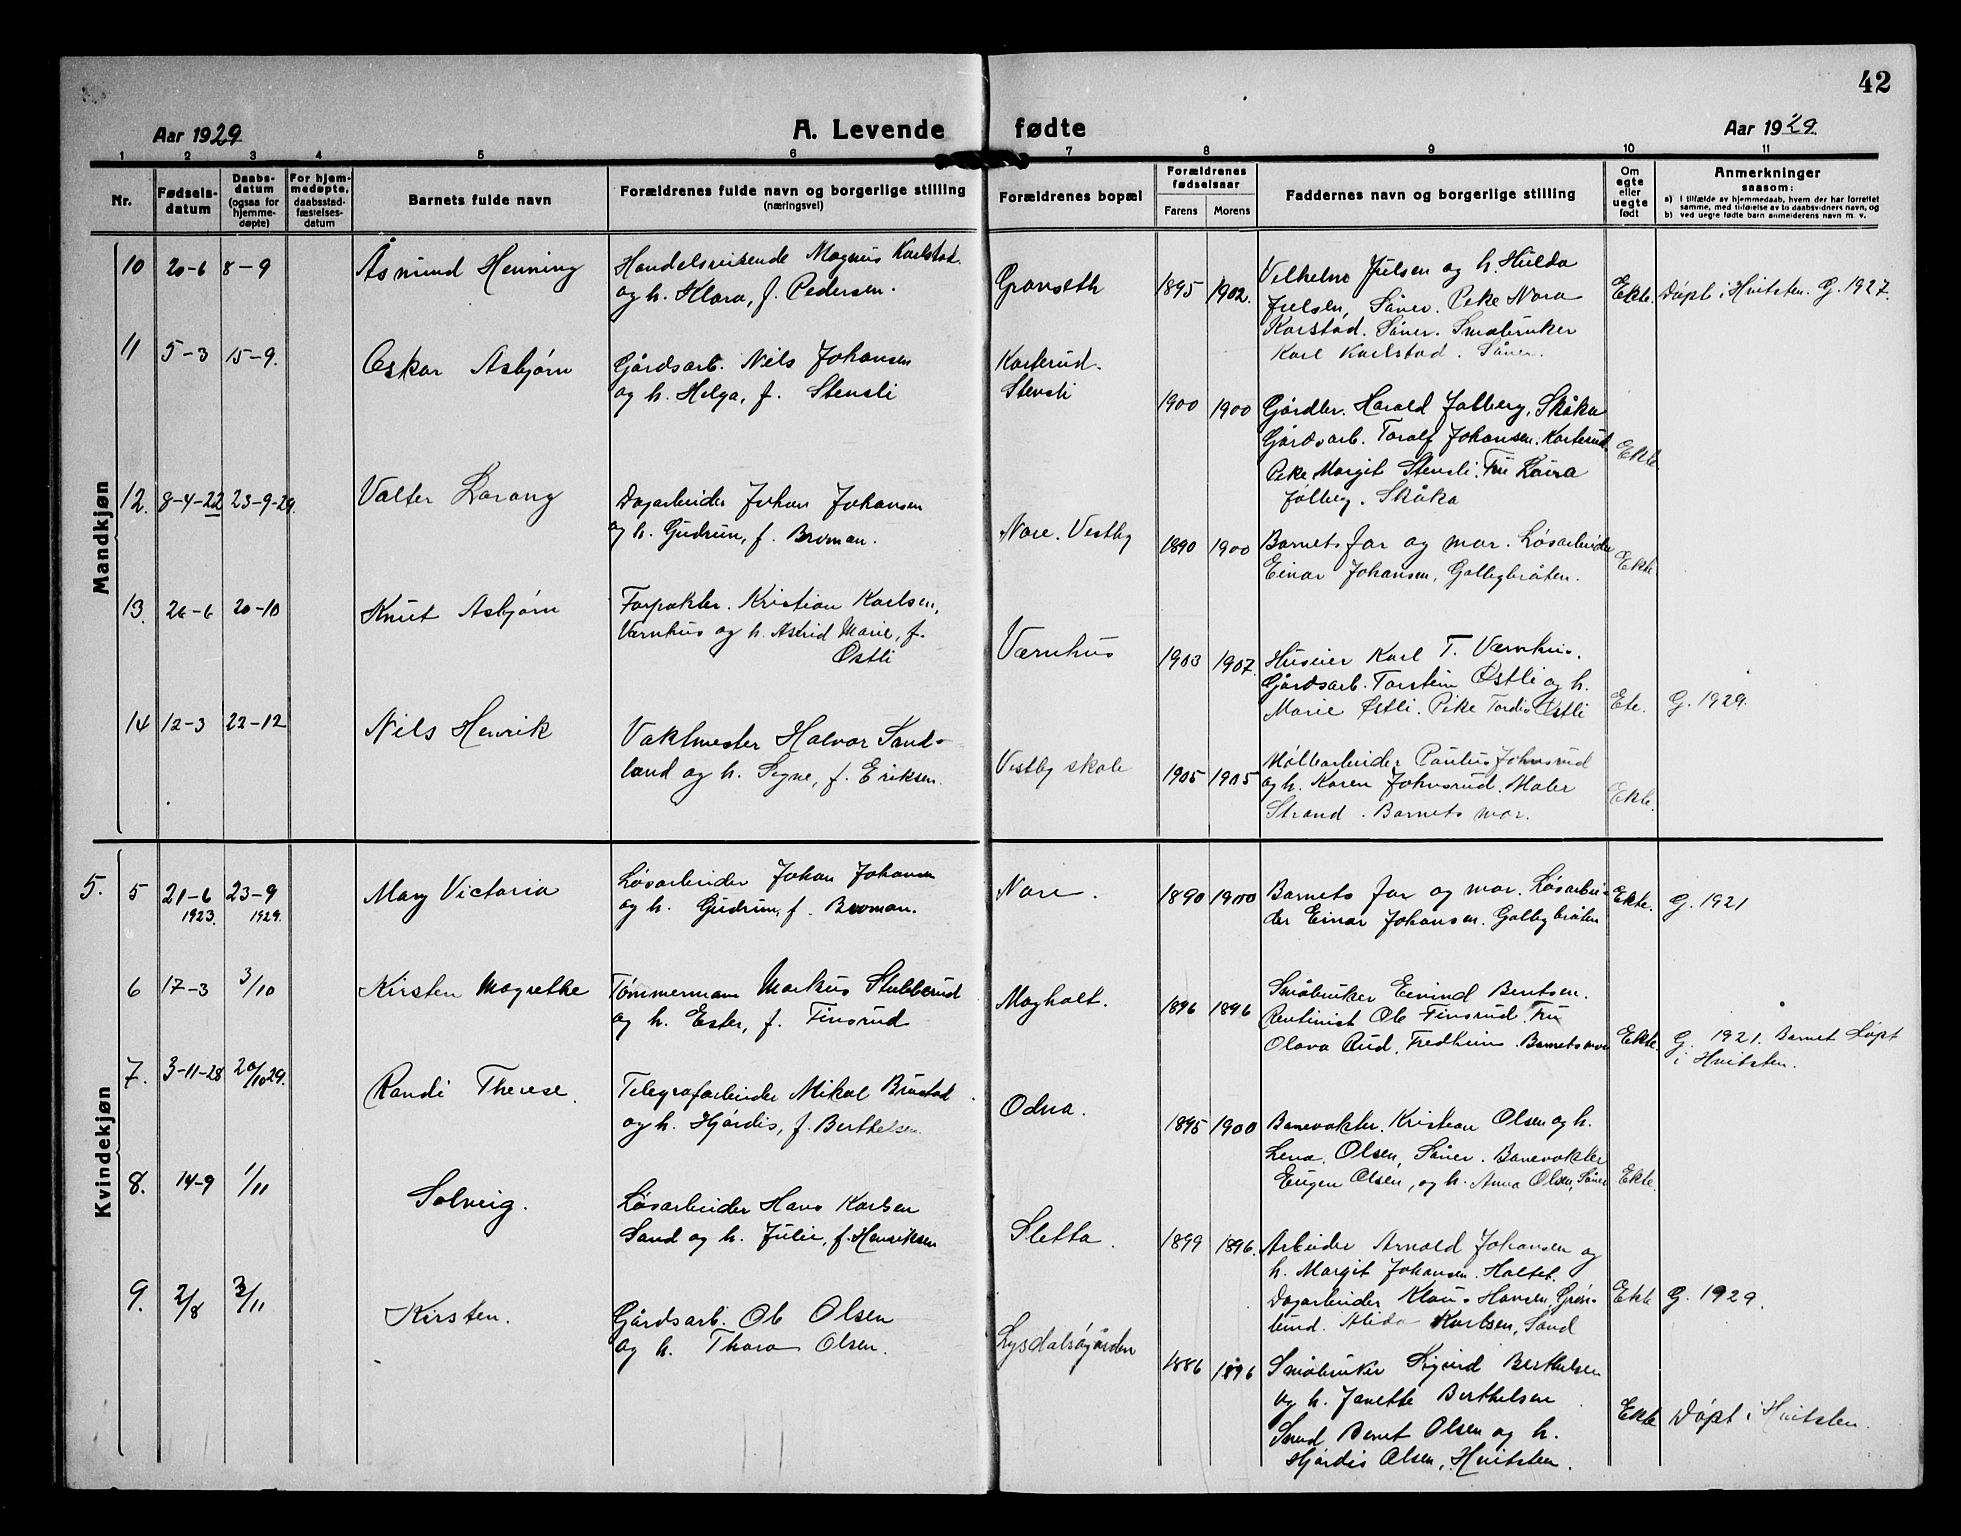 42
Aar 1929
A. Levende fødte
Aar 1929
1 2 3 4 5 6 7 8 9 10 11
Nr.
Fødsels-
datum
Daabs-
datum
(ogsaa for
hjemme-
døpte)
For hjem-
medøpte,
daabsstad-
fæstelses-
datum
Barnets fulde navn
Forældrenes fulde navn og borgerlige stilling
(næringsvei)
Forældrenes bopæl
Forældrenes
fødselsaar
Farens Morens
Faddernes navn og borgerlige stilling
Om
egte
eller
uegte
født
Anmerkninger
saasom:
a) i tilfælde av hjemmedaab, hvem der har forrettet
samme, med tilføielse av to daabsvidners navn, og
b) ved uegte fødte barn anmelderens navn m. v.
Mandkjøn
10 20-6 8-9 Åsmund Henning
Handelsreisende Magnus Karlstad
og h. Klara, f. Pedersen.
Granseth 1895 1902.
Vilhelm Julsen og h. Hulda
Julsen, Såner. Pike Nora
Karstad. Såner. Småbruker
Karl Karlstad. Såner.
Ekte. Døpt i Hvitsten. G. 1927.
11 5-3 15-9. Oskar Asbjørn
Gårdsarb. Nils Johansen
og h. Helga, f. Stensli
Karterud.
Stensli
1900 1900
Gårdbr. Harald Jølberg, Skåka
Gårdsarb. Toralf Johansen. Karterud.
Pike Margit Stensli. Fru Laura
Jølberg. Skåka
Ekte
12. 8-4-22 23-9-29. Valter Larang
Dagarbeider Johan Johansen
og h. Gudrun, f. Broman.
Nore. Vestby 1890 1900
Barnets far og mor. Løsarbeider
Einar Johansen, Galbybråten.
Ekte.
13. 26-6 20-10 Knut Asbjørn
Forpakter. Kristian Karlsen,
Værnhus og h. Astrid Marie, f.
Østli
Værnhus 1903 1907.
Huseier Karl T. Værnhus.
Gårdsarb. Torstein Østli og h.
Marie Østli. Pike Tordis Østli
Ete. G. 1929.
14 12-3 22-12 Nils Henrik
Vaktmester Halvor Sand-
land og h. Signe, f. Eriksen.
Vestby skole 1905 1905
Møllearbeider Paulus Johnsrud
og h. Karen Johnsrud. Maler
Strand. Barnets mor.
Ekte.
Kvindekjøn
5. 5 21-6 23-9 Mary Victoria
1923. 1929.
Løsarbeider Johan Johansen
og h. Gudrun, f. Broman.
Nore. 1890 1900
Barnets far og mor. Løsarbei-
der Einar Johansen. Galbybråten
Ekte. G. 1921
6 17-3 3/10 Kirsten Magrethe
Tømmermann Markus Stubberud
og h. Ester, f. Finsrud
Magholt. 1896 1896
Småbruker Eivind Bentsen.
Rentinist Ole Finsrud. Fru
Olava Rud, Fredheim. Barnets mor
Ekte. G. 1921. Barnet døpt
i Hvitsten.
7. 3-11-28 20/10 29. Randi Therese.
Telegrafarbeider Mikal Brustad
og h. Hjørdis, f. Berthelsen.
Odna. 1895 1900
Banevokter. Kristian Olsen og h.
Lena Olsen, Såner. Banevokter
Eugen Olsen, og h. Anna Olsen, Såner
Ekte.
8. 14-9 1/11 Solveig.
Løsarbeider Hans Karlsen
Sand og h. Julie, f. Henriksen
Sletta. 1899 1896.
Arbeider Arnold Johansen og
h. Margit Johansen. Haltet.
Dagarbeider Klaus Hansen, Grøn-
lund. Alida Karlsen, Sand
Ekte G. 1929.
9. 2/8 3/11 Kirsten.
Gårdsarb. Ole Olsen
og h. Thora Olsen.
Lysdalsgården 1886 1896
Småbruker Sigurd Berthelsen
og h. Janette Berthelsen
Smed Bernt Olsen og h.
Hjørdis Olsen, Hvitsteen.
Ekte Døpt i Hvitsten.